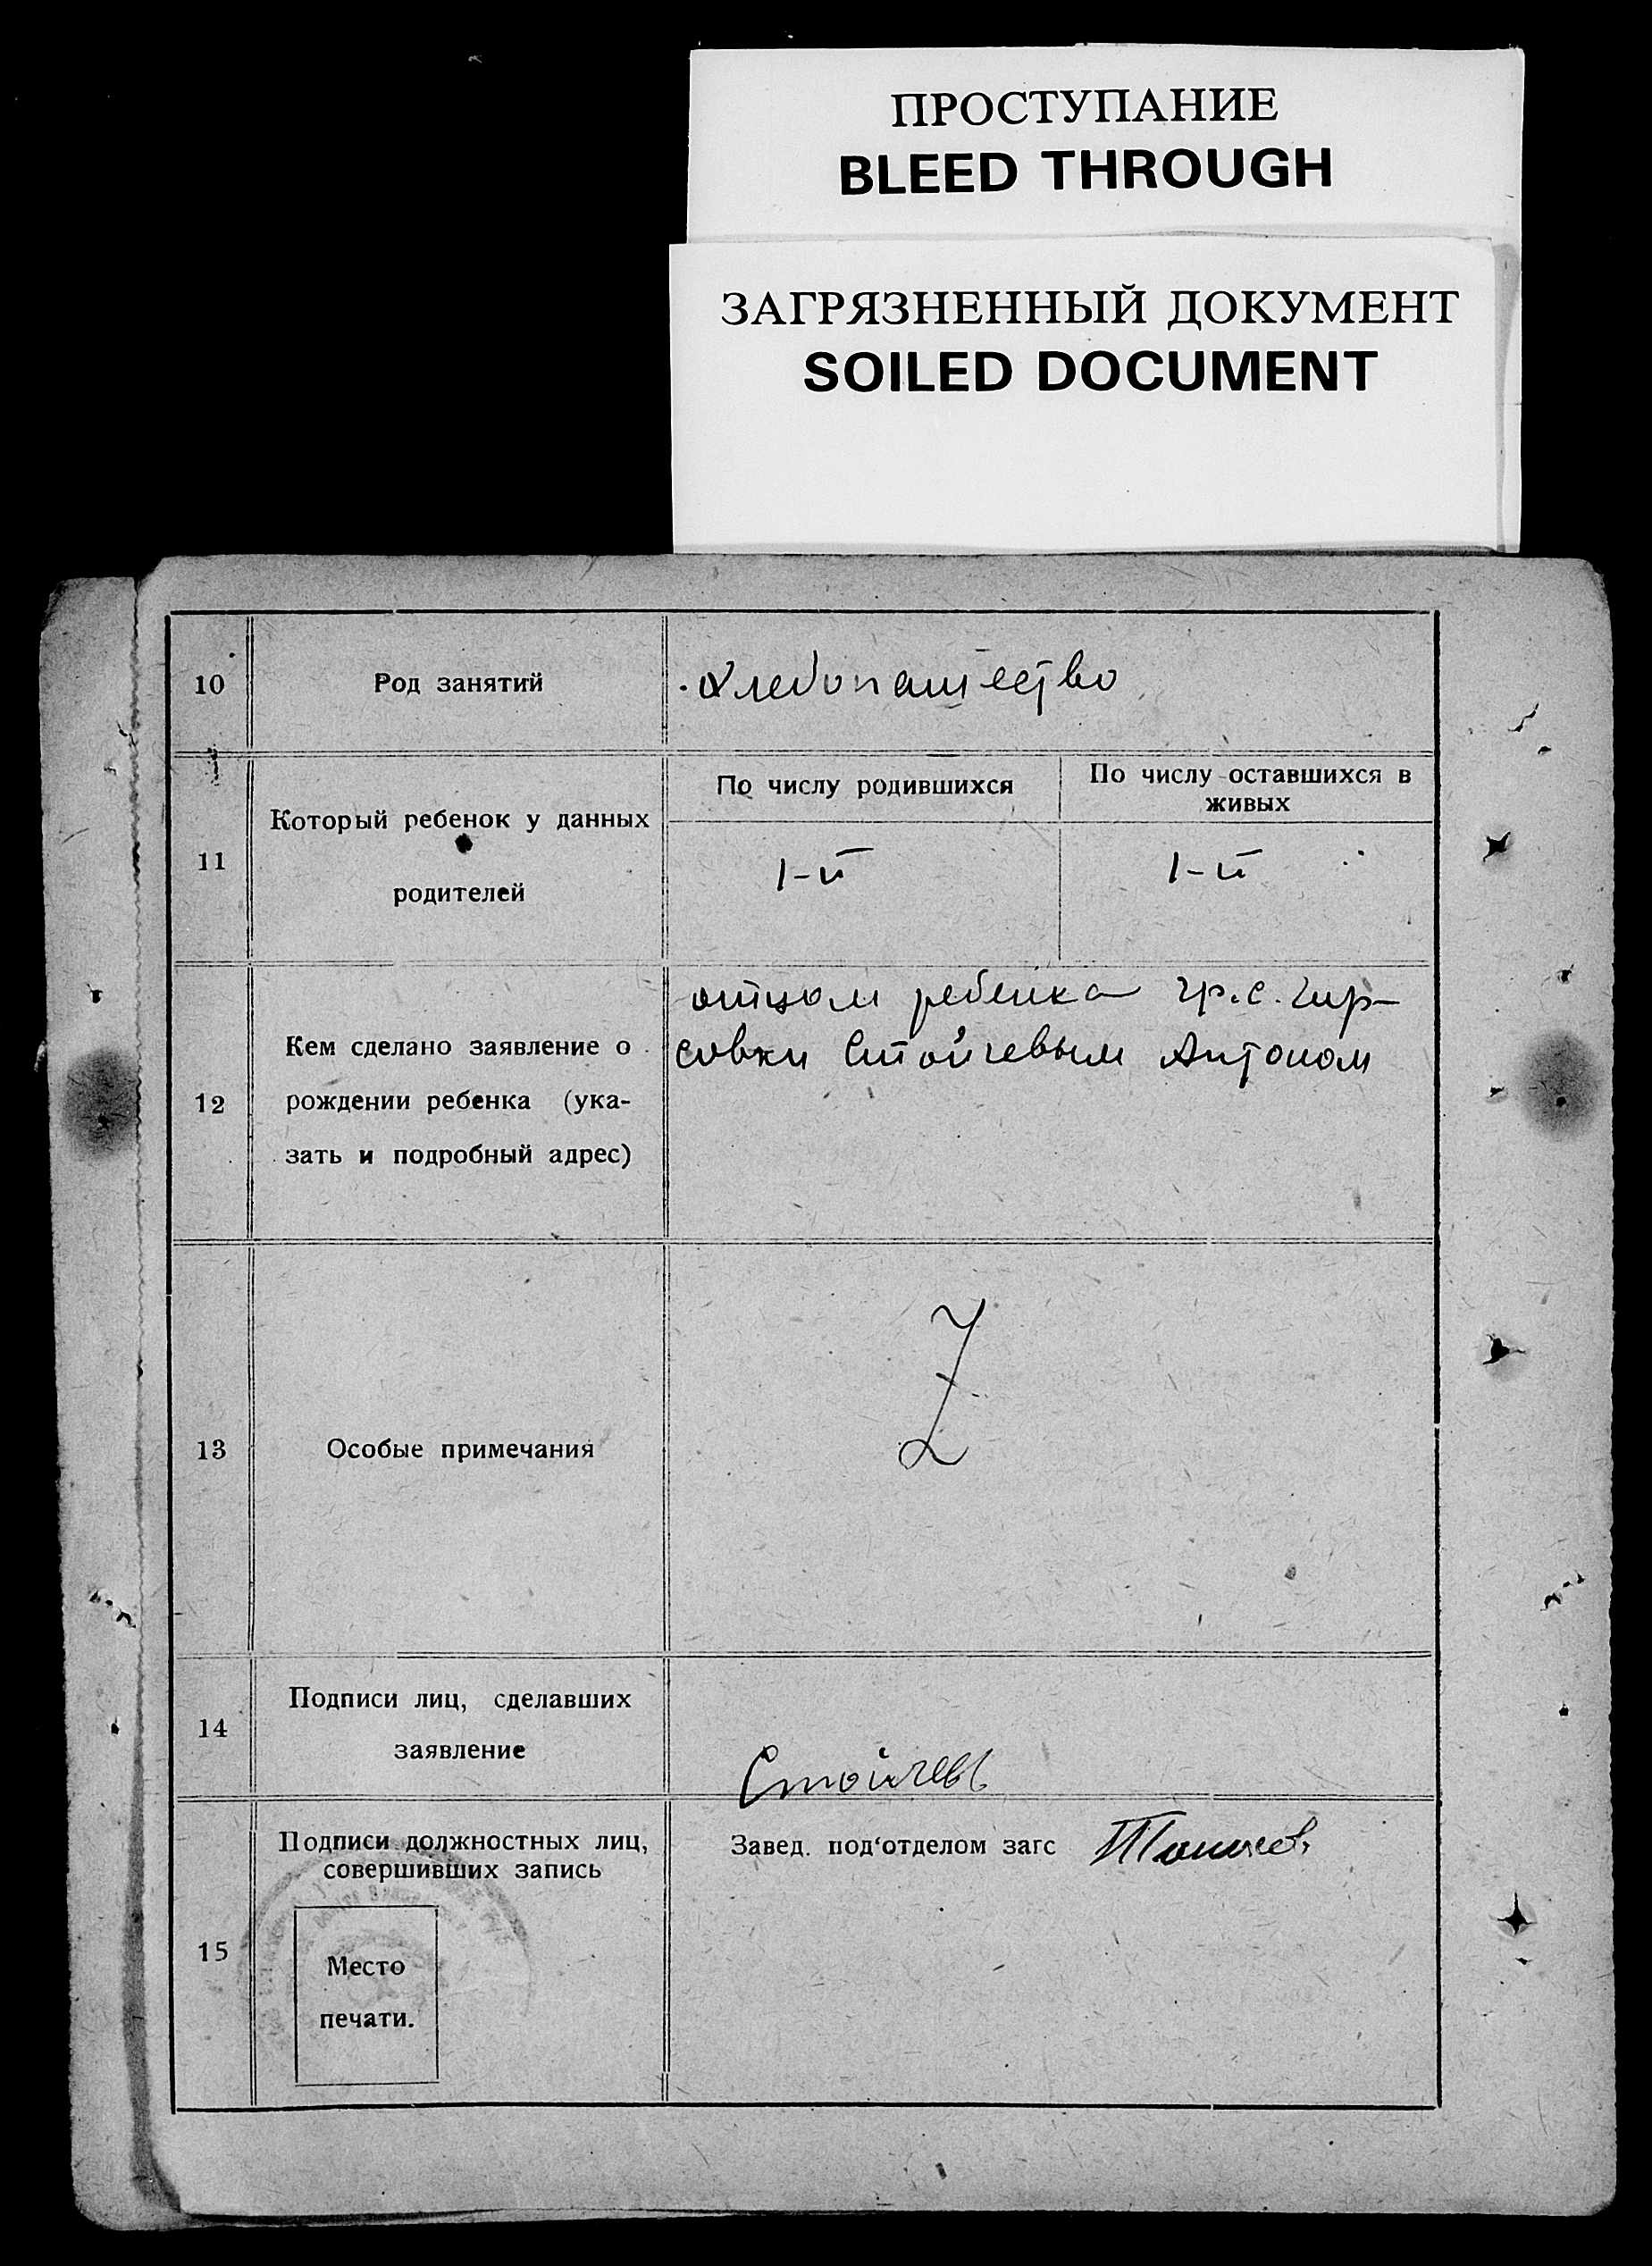 ПРОСТУПАНИЕ
BLEED THROUGH
ЗАГРЯЗНЕННЫЙ ДОКУМЕНТ
SOILED DOCUMENT
10
Род занятий
хлебопашество
11
Который ребенок у данных
родителей
По числу родившихся
По числу оставшихся в
живых
1-й
1-й
12
Кем сделано заявление о
рождении ребенка (ука-
зать и подробный адрес)
отцом ребенка гр. с. Гир-
совки Стойчевым Антоном
13
Особые примечания
Z
14
Подписи лиц, сделавших
заявление
Стойчевъ
15
Подписи должностных лиц,
совершивших запись
Завед. под'отделом загс
Место
печати.